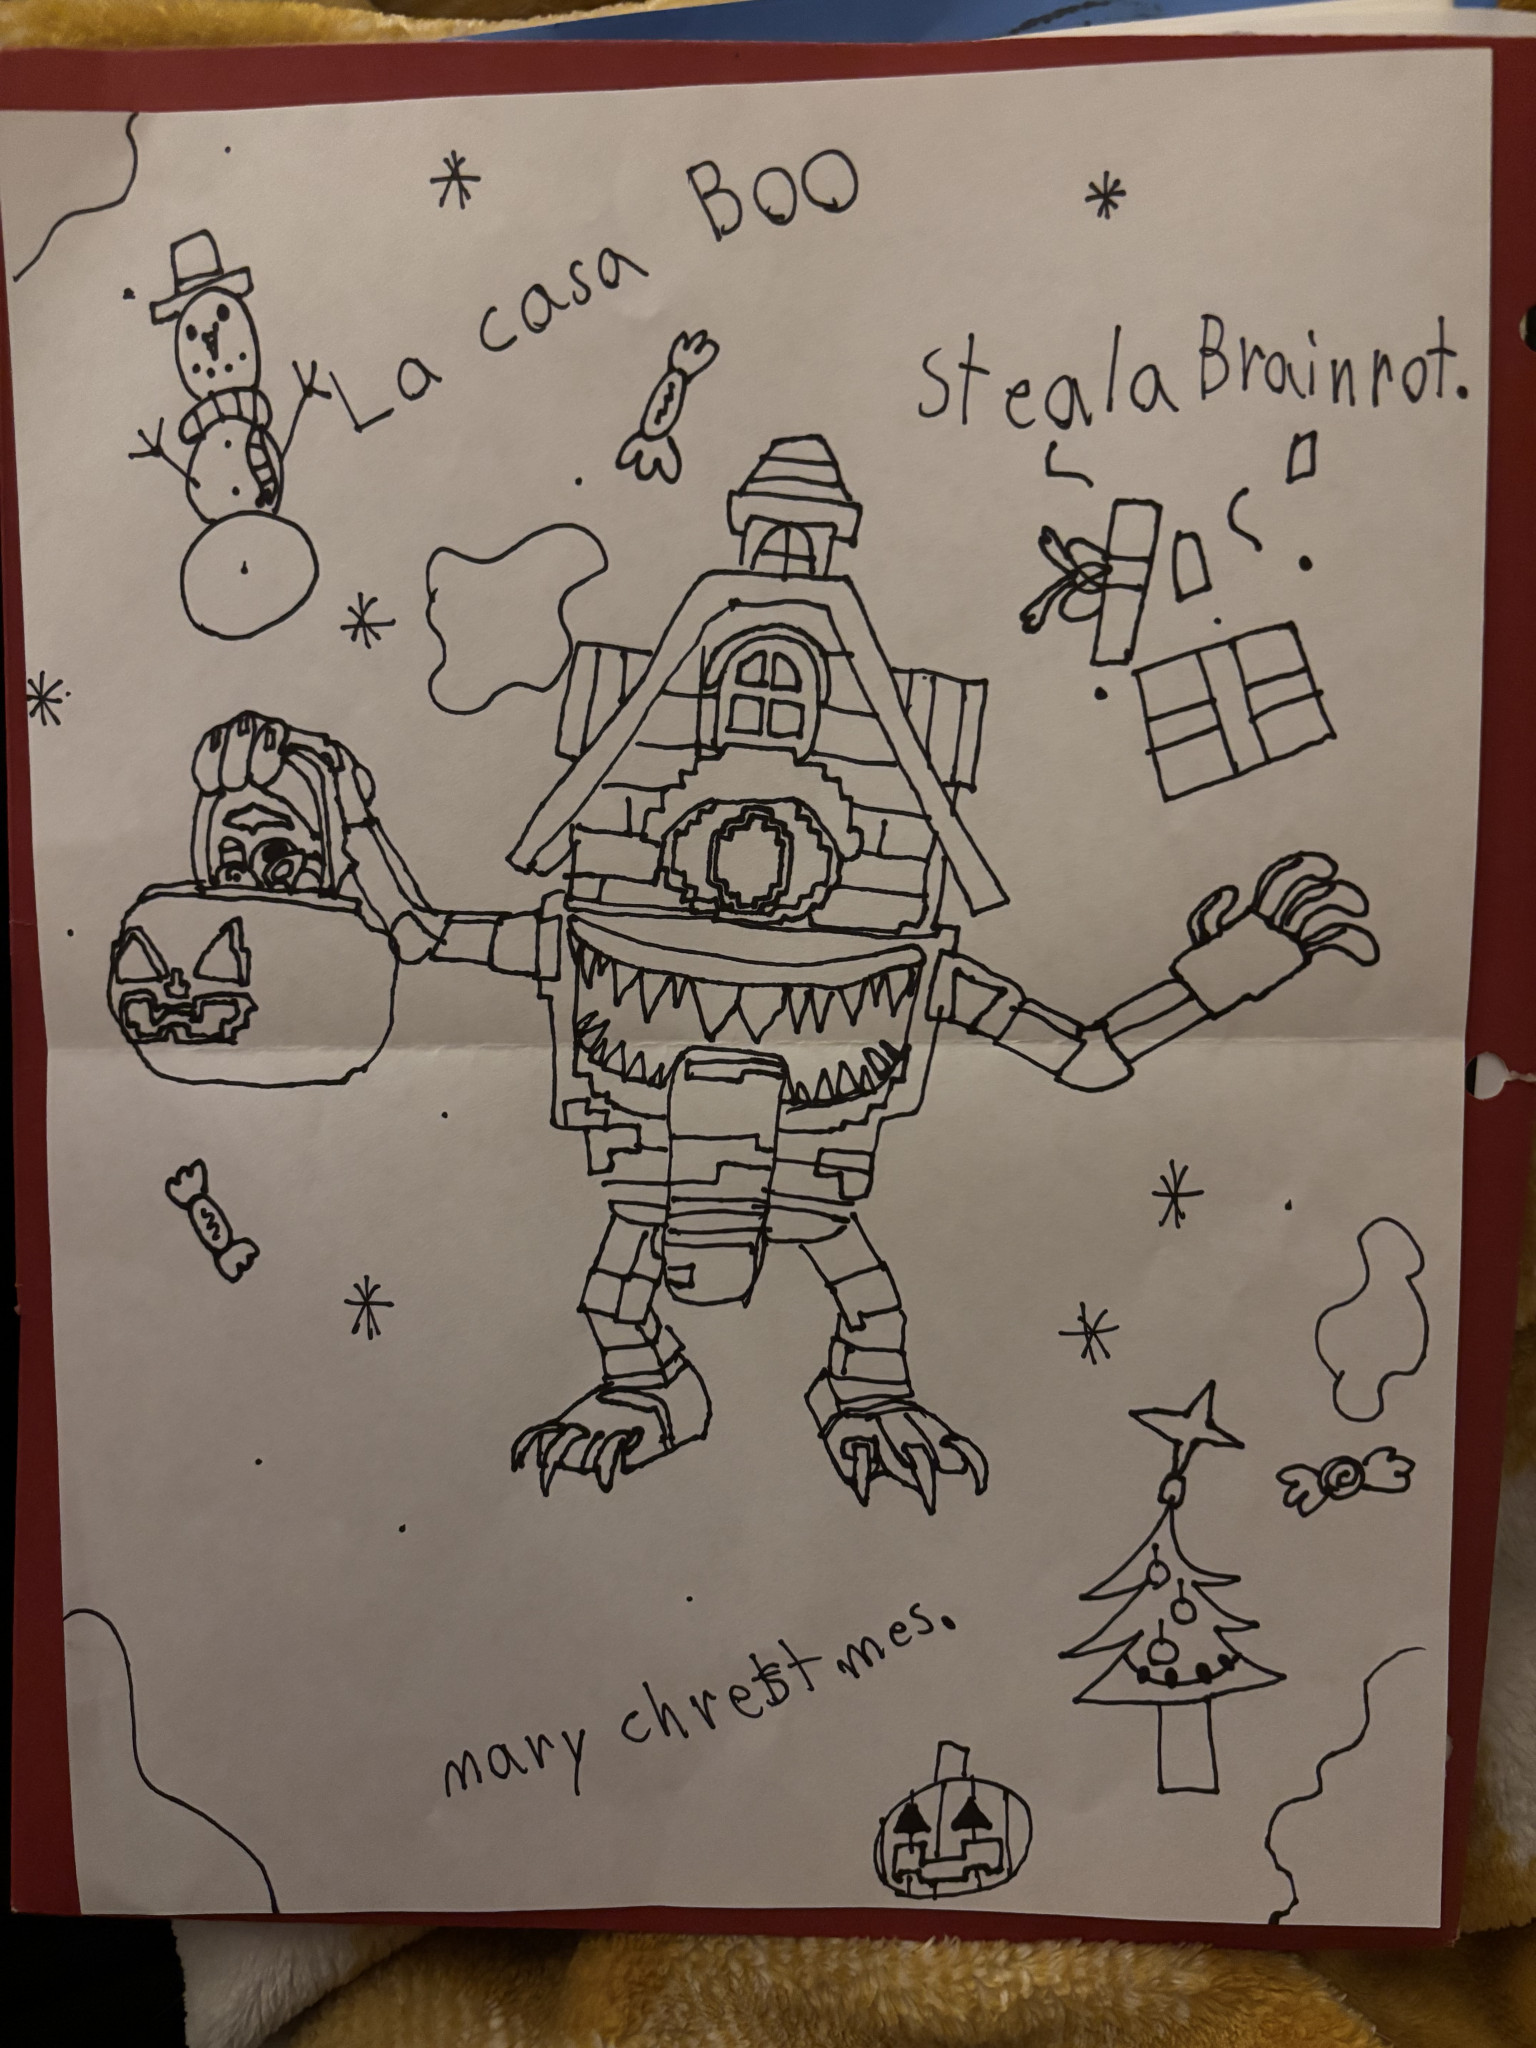 La casa Boo
Steal a Brainrot.
mary chrestmes.